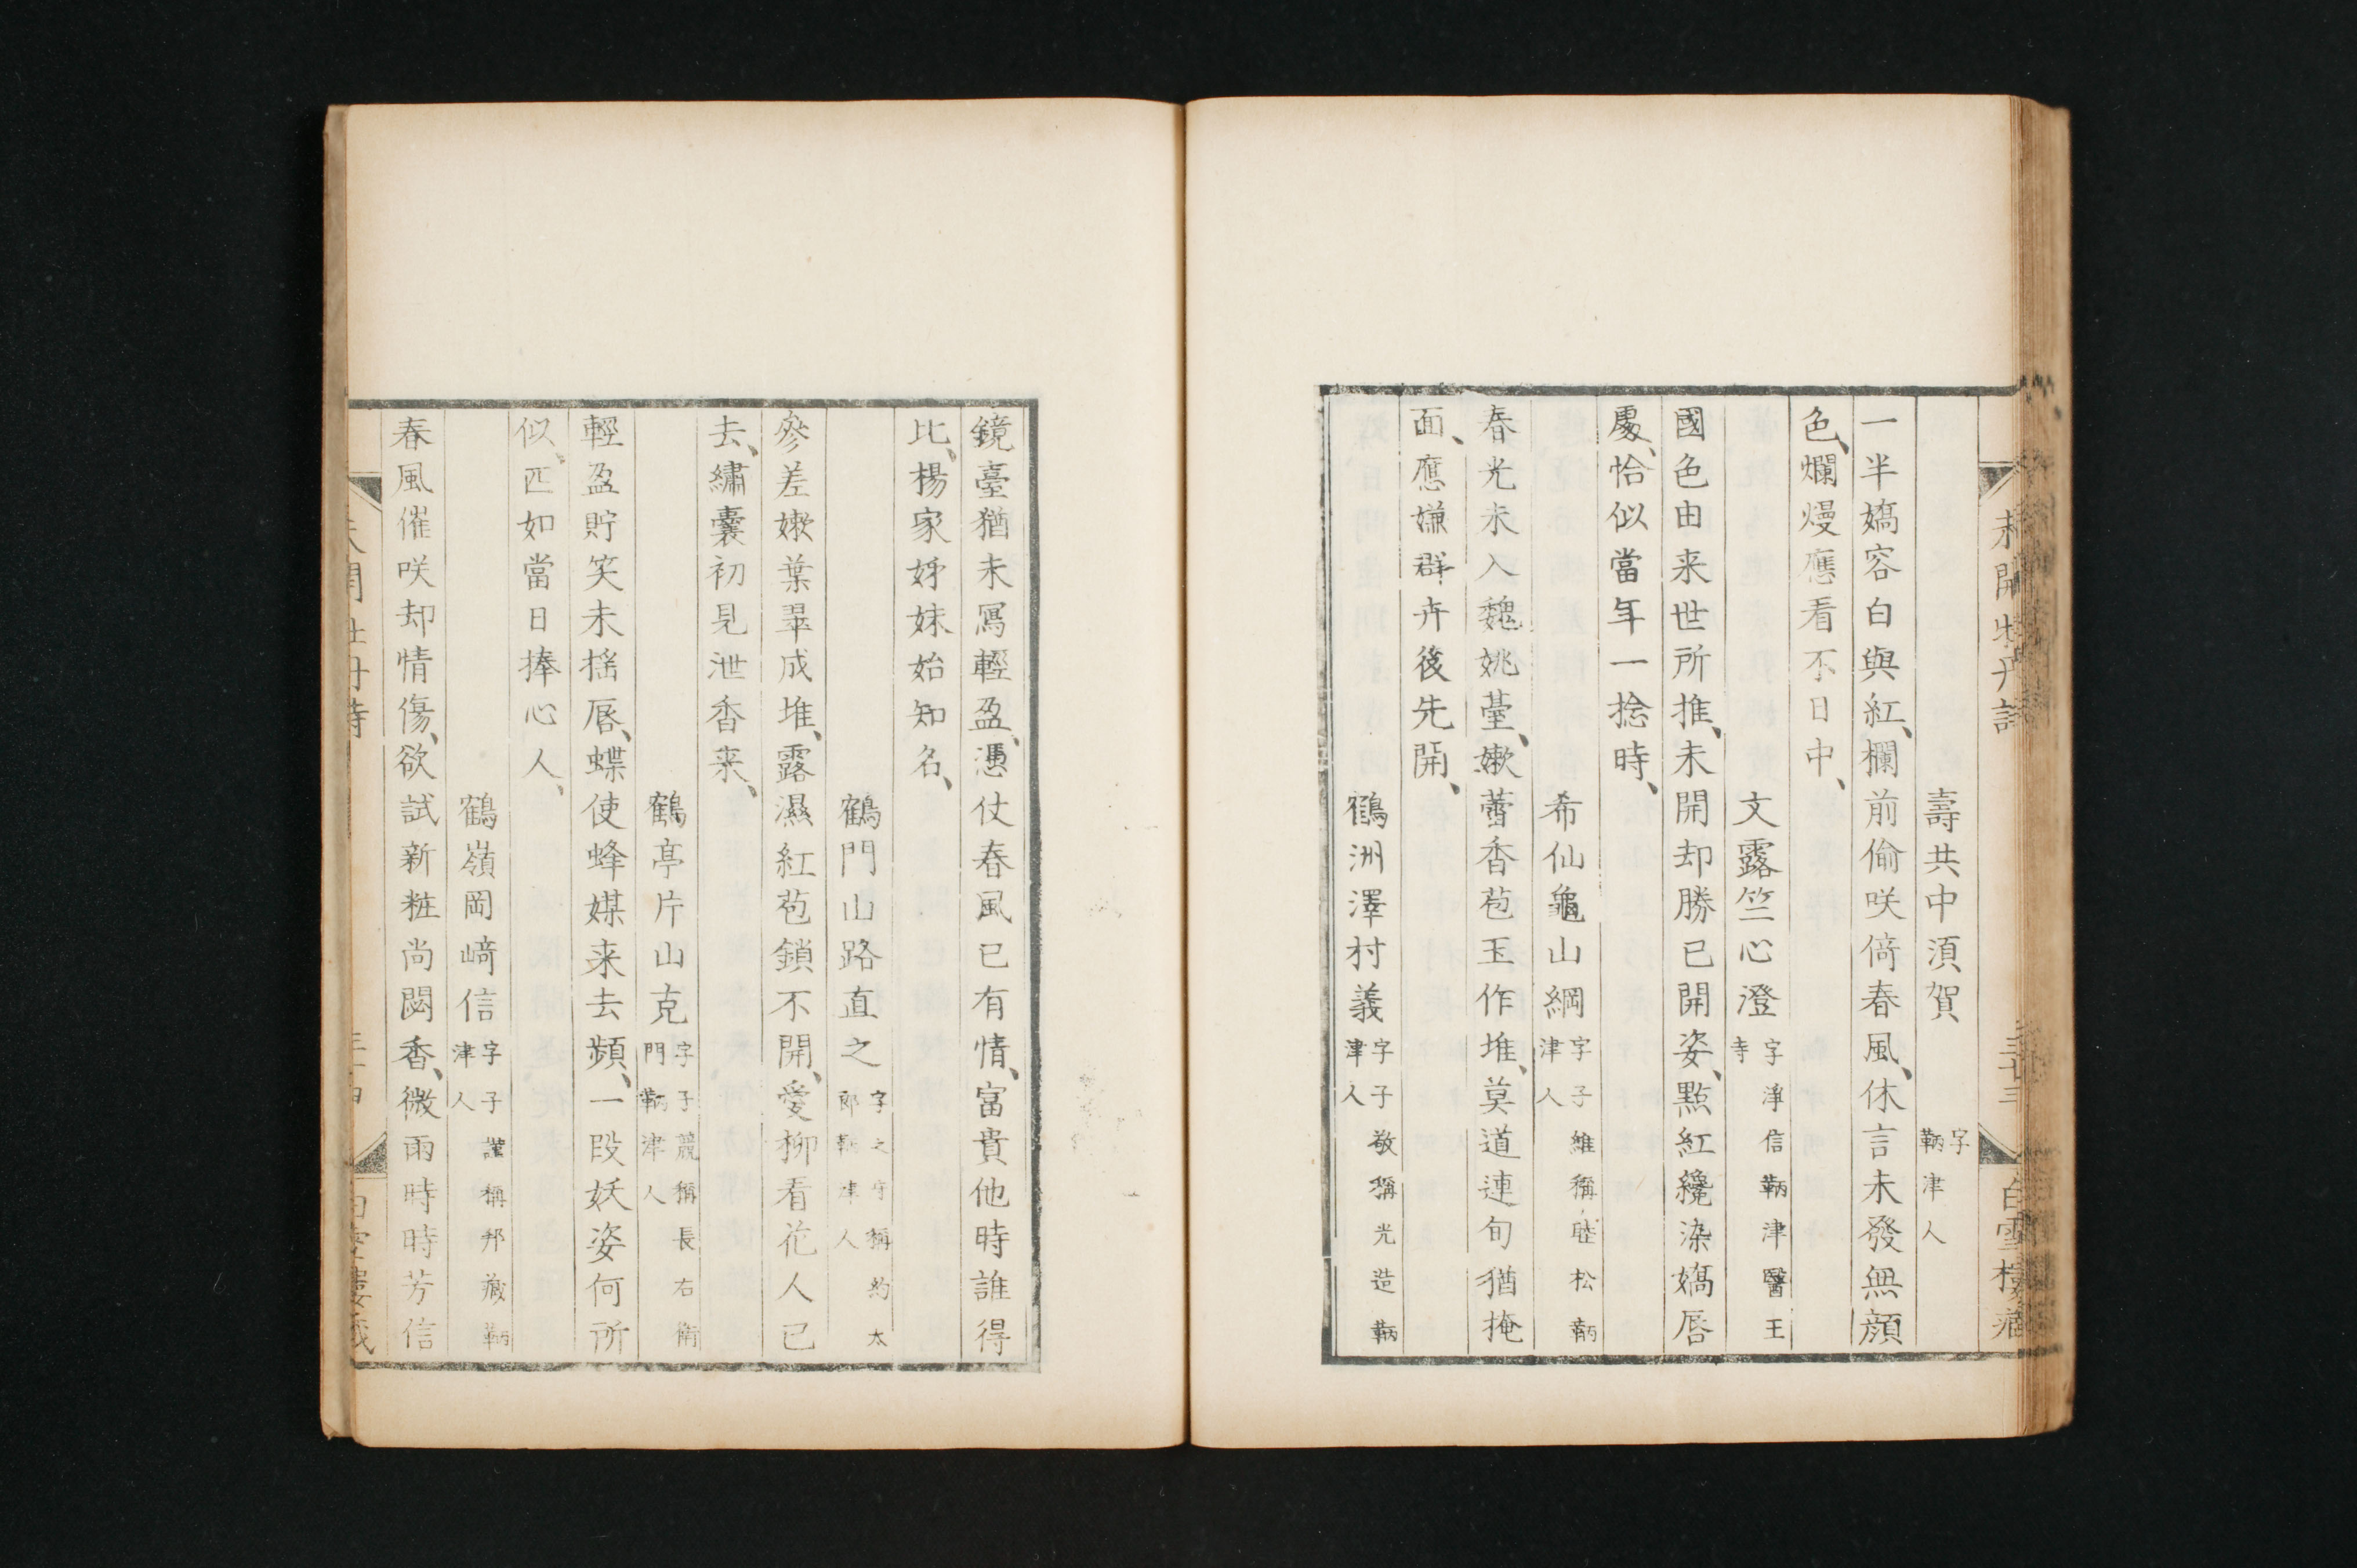 未開牡丹詩
三十三
白雪樓藏
壽共中須賀 字
鞆津人
一半嬌容白與紅、欄前偷咲倚春風、休言未發無顏
色、爛熳應看不日中、
文露竺心澄 字淨信鞆津醫王
寺
國色由来世所推、未開却勝已開姿、點紅纔染嬌唇
處、恰似當年一捻時、
希仙龜山綱 字子維稱 松鞆
津人
春光未入魏姚臺、嫩蕾香苞玉作堆、莫道連旬猶掩
面、應嫌群卉後先開、
鶴洲澤村義 字子敬稱光造鞆
津人
鏡臺猶未寫輕盈、憑仗春風已有情、富貴他時誰得
比、楊家姊妹始知名、
鶴門山路直之 字之守稱約太
郎鞆津人
參差嫩葉翠成堆、露濕紅苞鎖不開、愛柳看花人已
去、繡囊初見泄香来、
鶴亭片山克 字子競稱長右衛
門鞆津人
輕盈貯笑未搖唇、蝶使蜂媒来去頻、一段妖姿何所
似、匹如當日捧心人、
鶴嶺岡﨑信 字子謹稱邦藏鞆
津人
春風催咲却情傷、欲試新粧尚閟香、微雨時時芳信